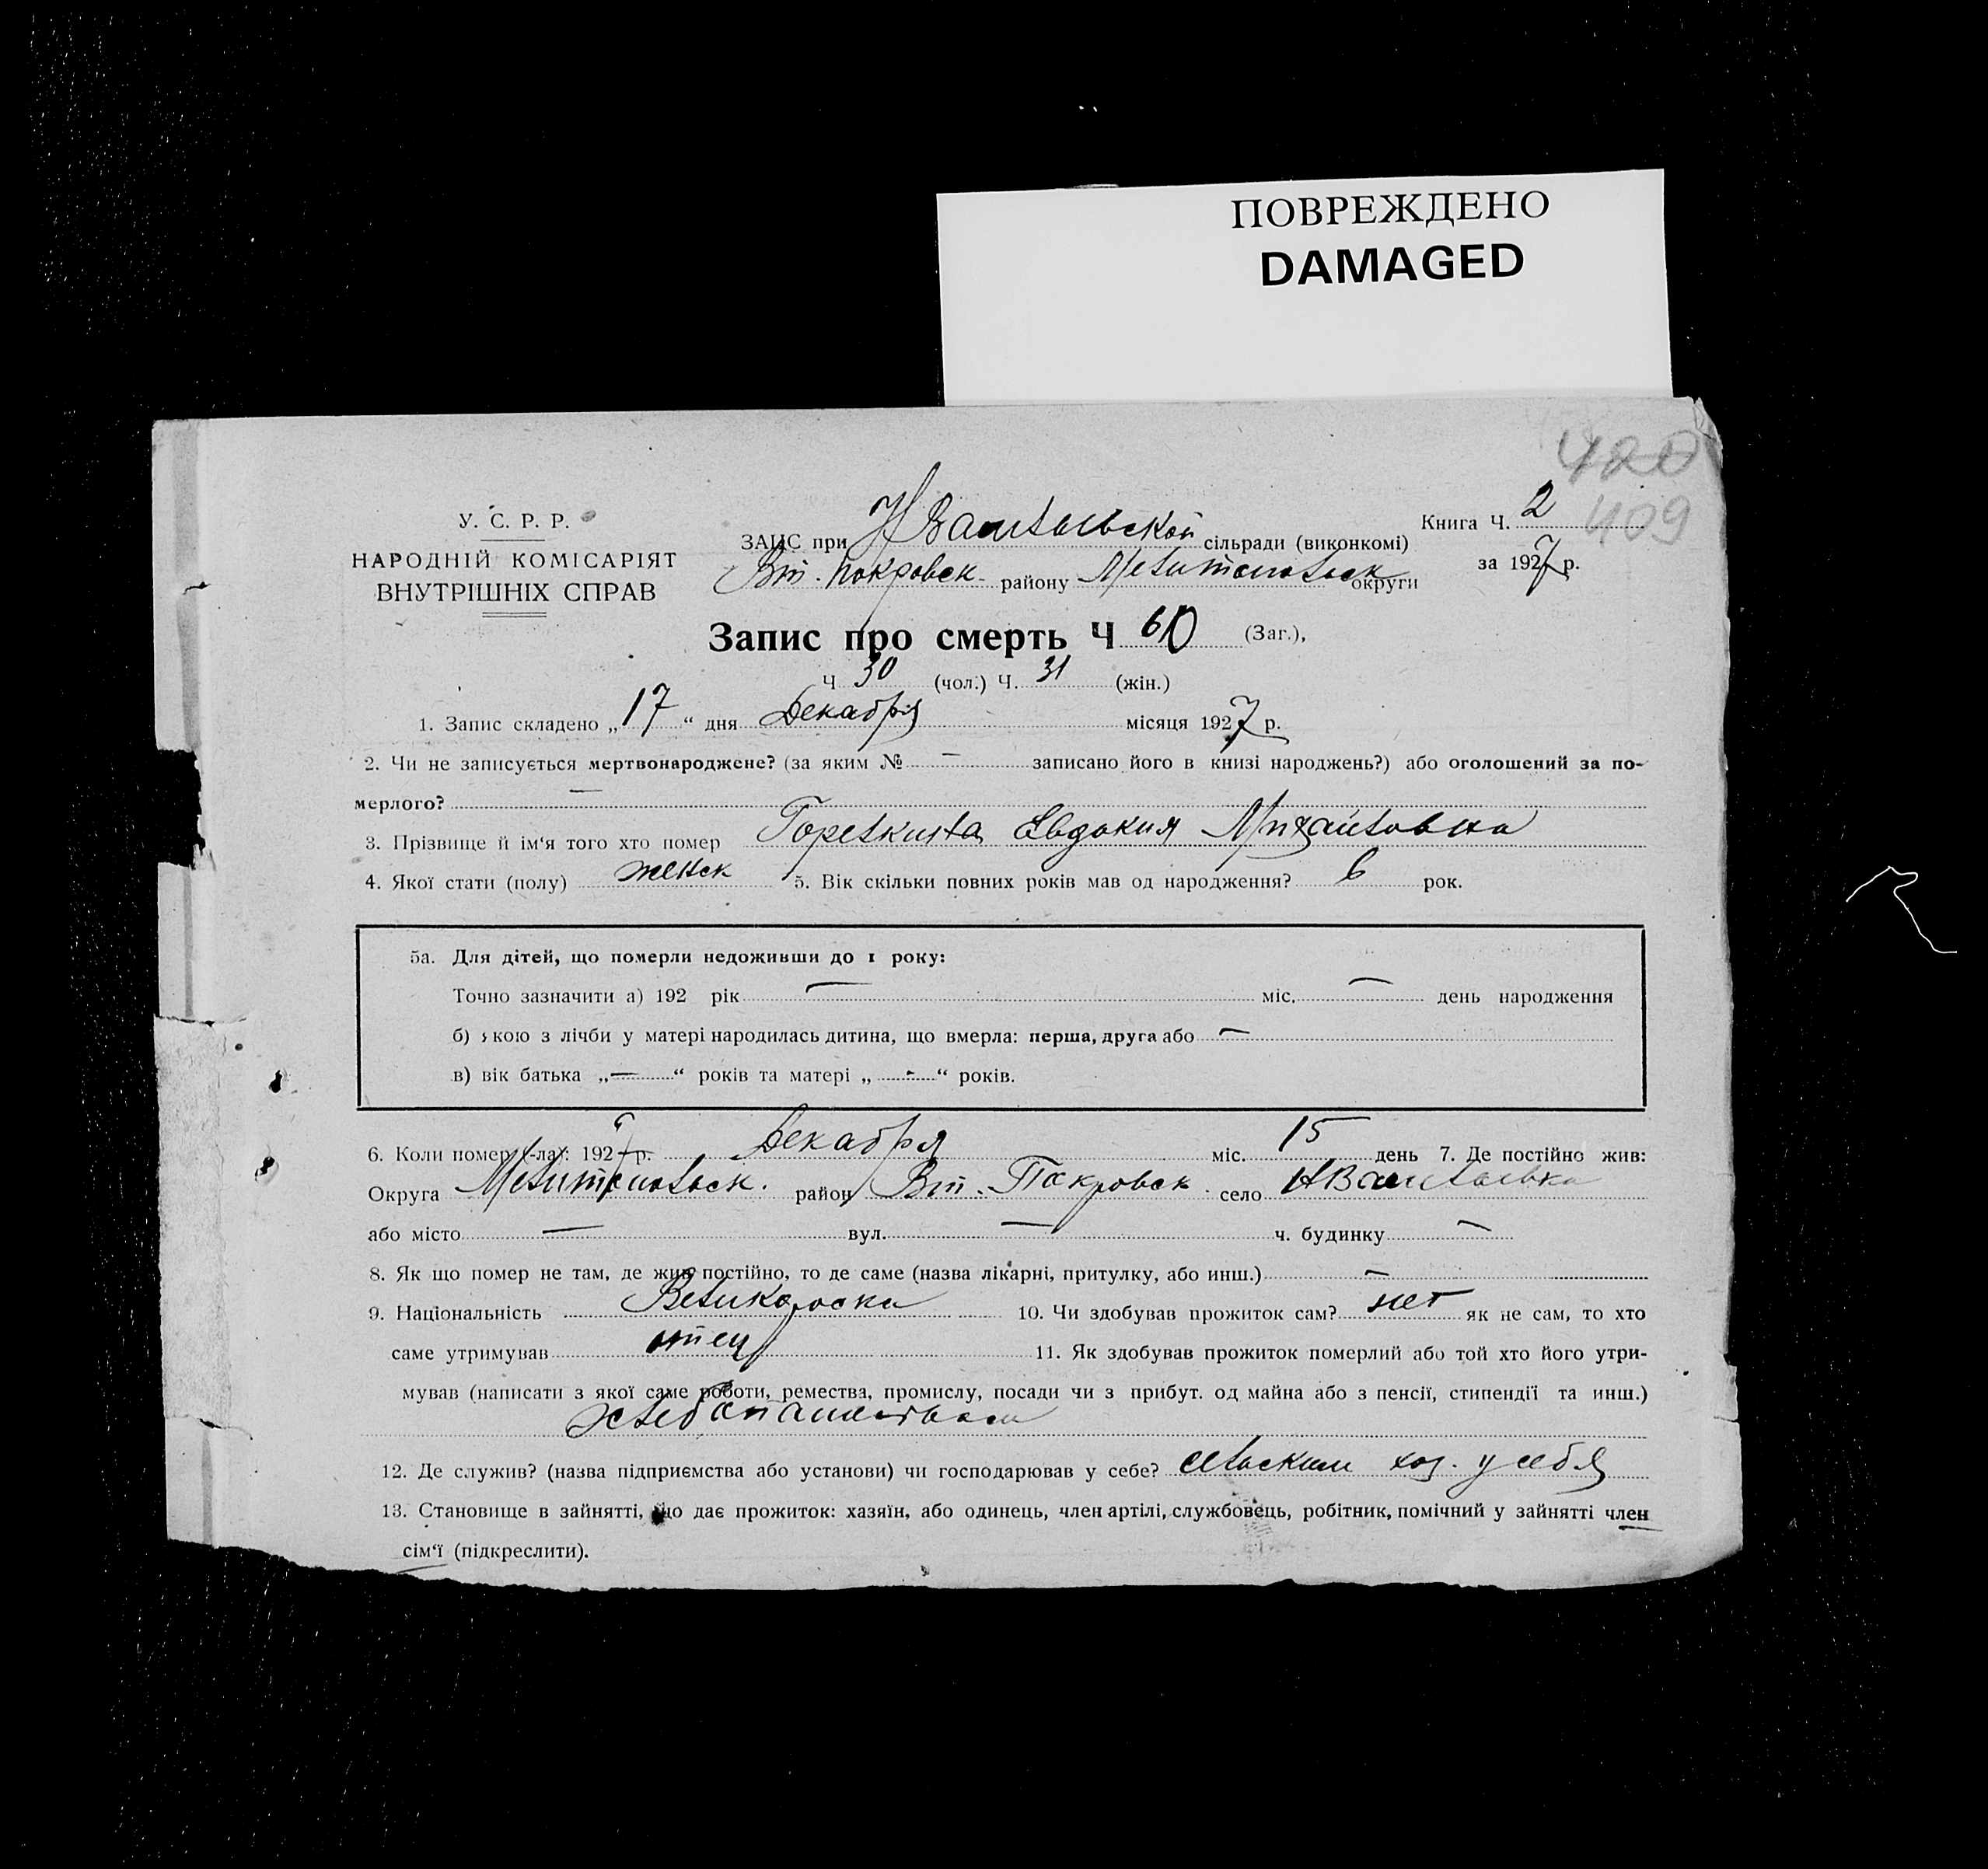 ПОВРЕЖДЕНО
DAMAGED
420
409
У. С. Р. Р.
НАРОДНІЙ КОМІСАРІЯТ
ВНУТРІШНІХ СПРАВ
ЗАГС при сільради (виконкомі)
Вт. Покровск. району Мелитопольск округи
Книга Ч. 2
за 1927 р.
Запис про смерть Ч (Заг.),
Ч 30 (чол.) Ч. 31 (жін.)
1. Запис складено „17“ дня Декабря місяця 1927 р.
2. Чи не записується мертвонароджене? (за яким № — записано його в книзі народжень?) або оголошений за по-
мерлого? —
3. Прізвище й ім‘я того хто помер Горелкина Евдокия Михайловна
4. Якої стати (полу) женск 5. Вік скільки повних років мав од народження? 6 рок.
5а. Для дітей, що померли недоживши до 1 року:
Точно зазначити а) 192 рік — міс. — день народження
б) кою з лічби у матері народилась дитина, що вмерла: перша, друга або —
в) вік батька „—“ років та матері „-“ років.
6. Коли помер (-ла): 192 р. Декабря міс. 15 день 7. Де постійно жив:
Округа Мелитопольск. район Вт. Покровск село
або місто — вул. — ч. будинку —
8. Як що помер не там, де жив постійно, то де саме (назва лікарні, притулку, або инш.) —
9. Національність Великороска 10. Чи здобував прожиток сам? нет як не сам, то хто
саме утримував отец 11. Як здобував прожиток померлий або той хто його утри-
мував (написати з якої саме роботи, ремества, промислу, посади чи з прибут. од майна або з пенсії, стипендії та инш.)
хлебопашеством
12. Де служив? (назва підприємства або установи) чи господарював у себе? сельским хоз. у себя
13. Становище в зайнятті, що дає прожиток: хазяїн, або одинець, член артілі, службовець, робітник, помічний у зайнятті член
сім‘ї (підкреслити).